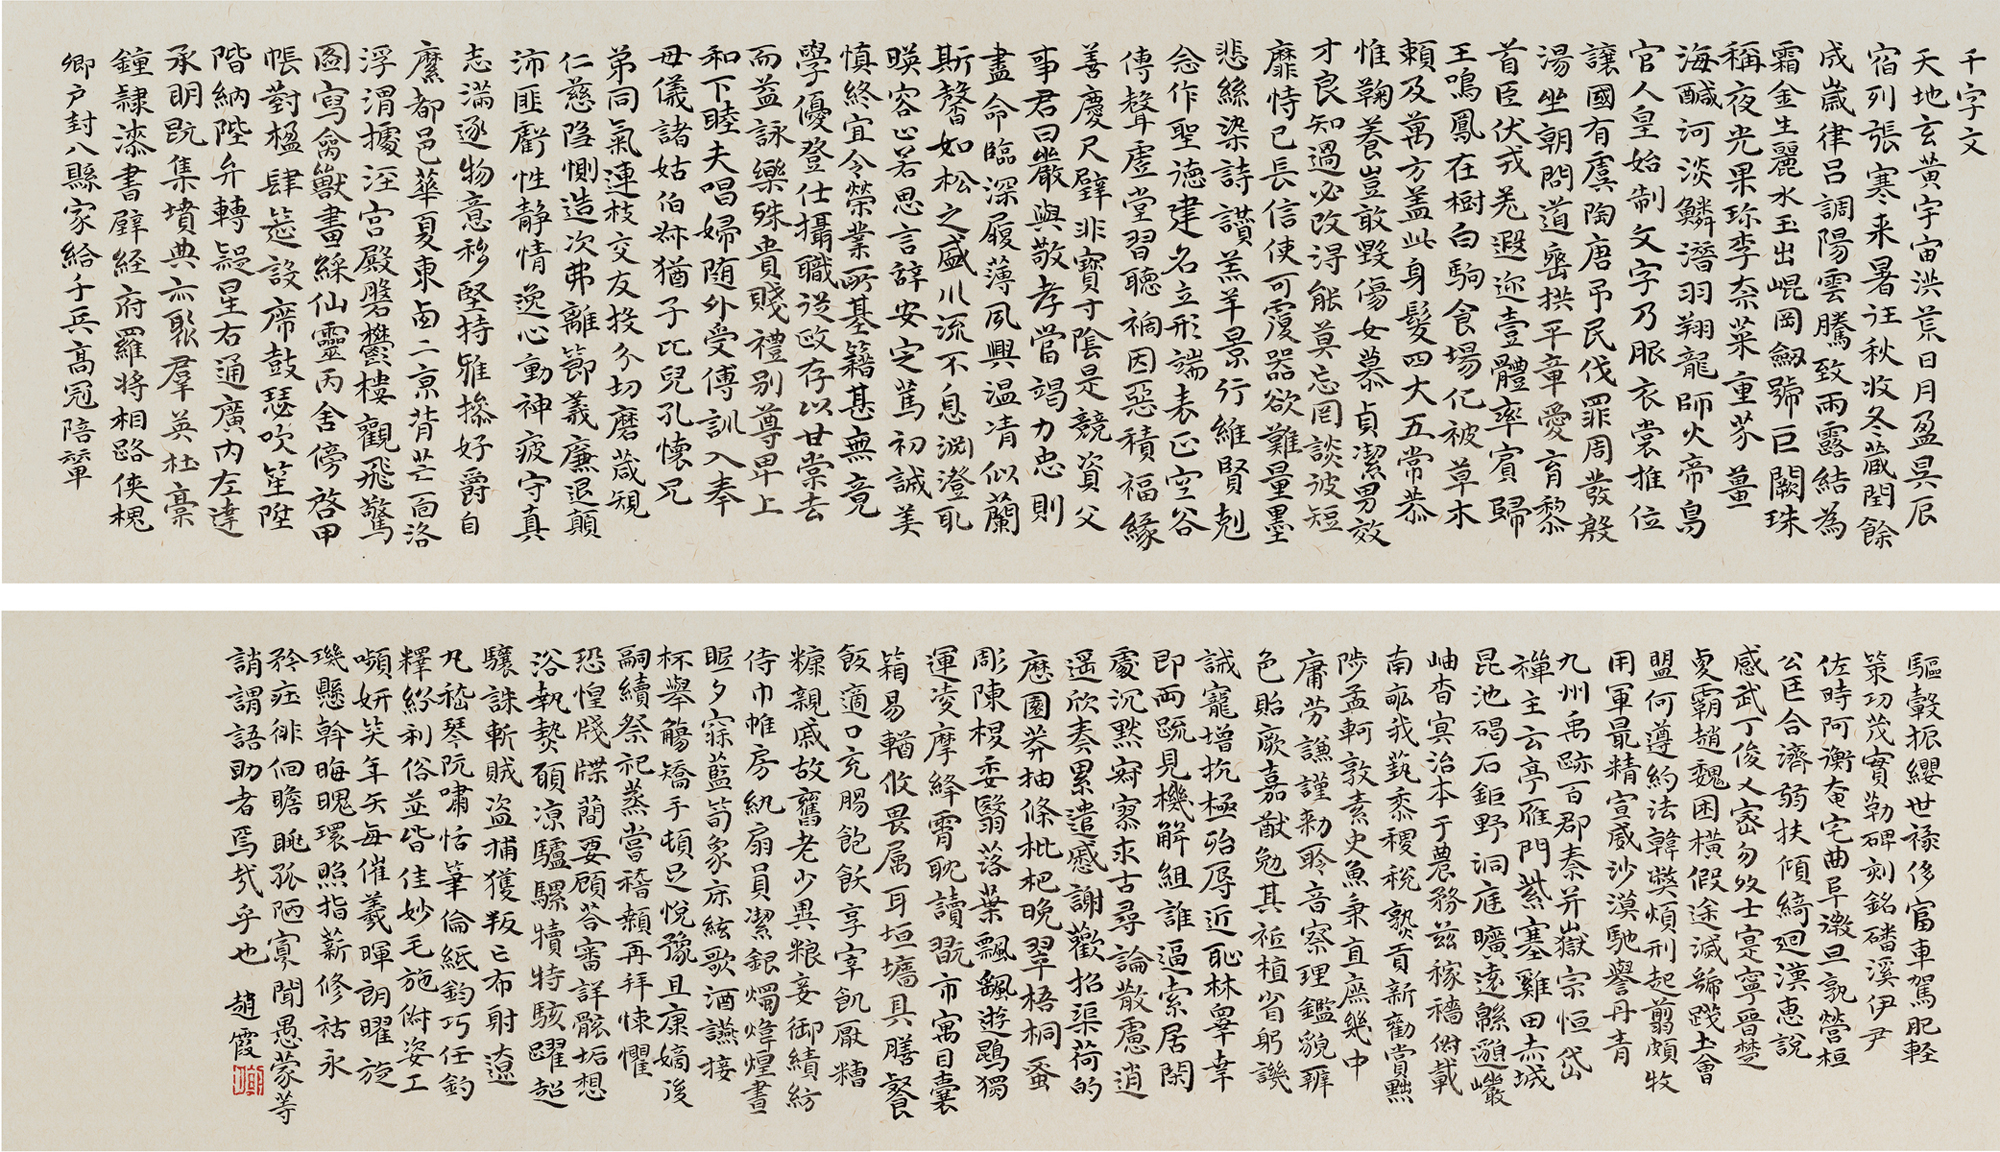 千字文
天地玄黃宇宙洪荒日月盈昃辰
宿列張寒来暑汪秋收冬藏閏餘
成歲律呂調陽雲騰致雨露結為
霜金生麗水玉出崐岡劒號巨闕珠
稱夜光果珎李柰菜重芥薑
海醎河淡鱗潛羽翔龍師火帝鳥
官人皇始制文字乃服衣裳推位
讓國有虞陶唐弔民伐罪周發殷
湯坐朝問道垂拱平章愛育黎
首臣伏戎羌遐迩壹體率賓歸
王鳴鳳在樹白駒食場化被草木
賴及萬方盖此身髮四大五常恭
惟鞠養豈敢毀傷女慕貞潔男效
才良知過必改得能莫忘罔談彼短
靡恃己長信使可覆器欲難量墨
悲絲染詩讚羔羊景行維賢剋
念作聖德建名立形端表正空谷
傳聲虛堂習聽禍因惡積福緣
善慶尺璧非寶寸陰是競資父
事君曰嚴與敬孝當竭力忠則
盡命臨深履薄夙興温凊似蘭
斯馨如松之盛川流不息淵澄取
暎容止若思言辭安定篤初誠美
慎終宜令榮業所基籍甚無竟
學優登仕攝職從政存以甘棠去
而益詠樂殊貴賤禮別尊卑上
和下睦夫唱婦随外受傅訓入奉
母儀諸姑伯叔猶子比兒孔懷兄
弟同氣連枝交友投分切磨箴規
仁慈隐惻造次弗離節義廉退顛
沛匪虧性静情逸心動神疲守真
志滿逐物意移堅持雅操好爵自
縻都邑華夏東西二京背芒面洛
浮渭據涇宮殿盤鬱樓觀飛驚
圖寫禽獸畫綵仙靈丙舍傍啓甲
帳對楹肆筵設席鼓瑟吹笙陞
階納陛弁轉疑星右通廣内左達
承明既集墳典亦聚羣英杜稾
鐘隸漆書壁経府羅將相路俠槐
卿户封八縣家給千兵高冠陪輦
驅轂振纓世祿侈富車駕肥輕
策功茂實勒碑刻銘磻溪伊尹
佐時阿衡奄宅曲阜微旦孰營桓
公匡合濟弱扶傾綺迴漢惠說
感武丁俊乂密勿多士寔寧晉楚
更霸趙魏困橫假途滅虢踐土會
盟何遵約法韓弊煩刑起翦頗牧
用軍最精宣威沙漠馳譽丹青
九州禹跡百郡秦并嶽宗恒岱
禪主云亭雁門紫塞雞田赤城
昆池碣石鉅野洞庭曠遠緜邈巖
岫杳冥治本于農務兹稼穡俶載
南畝我蓺黍稷稅熟貢新勸賞黜
陟孟軻敦素史魚秉直庶幾中
庸勞謙謹勑聆音察理鑑貌辨
色貽厥嘉猷勉其祗植省躬譏
誡寵增抗極殆辱近恥林皋幸
即兩疏見機解組誰逼索居閑
處沉默寂寥求古尋論散慮逍
遥欣奏累遣慼謝歡招渠荷的
歷園莽抽條枇杷晚翠梧桐蚤
彫陳根委翳落葉飄颻遊鵾獨
運凌摩絳霄耽讀翫市寓目囊
箱易輶攸畏属耳垣墻具膳餐
飯適口充腸飽飫享宰飢厭糟
糠親戚故舊老少異粮妾御績紡
侍巾帷房紈扇員潔銀燭煒煌晝
眠夕寐藍筍象床絃歌酒讌接
杯舉觴矯手頓足悅豫且康嫡後
嗣續祭祀蒸嘗稽顙再拜悚懼
恐惶牋牒蕳要顧荅審詳骸垢想
浴執熱願凉驢騾犢特駭躍超
驤誅斬賊盗捕獲叛亡布射遼
丸嵇琴阮嘯恬筆倫紙鈞巧任釣
釋紛利俗並皆佳妙毛施俯姿工
嚬妍笑年矢每催羲暉朗曜旋
璣懸斡晦魄環照指薪修祜永
矜莊徘徊瞻眺孤陋寡聞愚蒙等
誚謂語助者焉哉乎也 趙霞